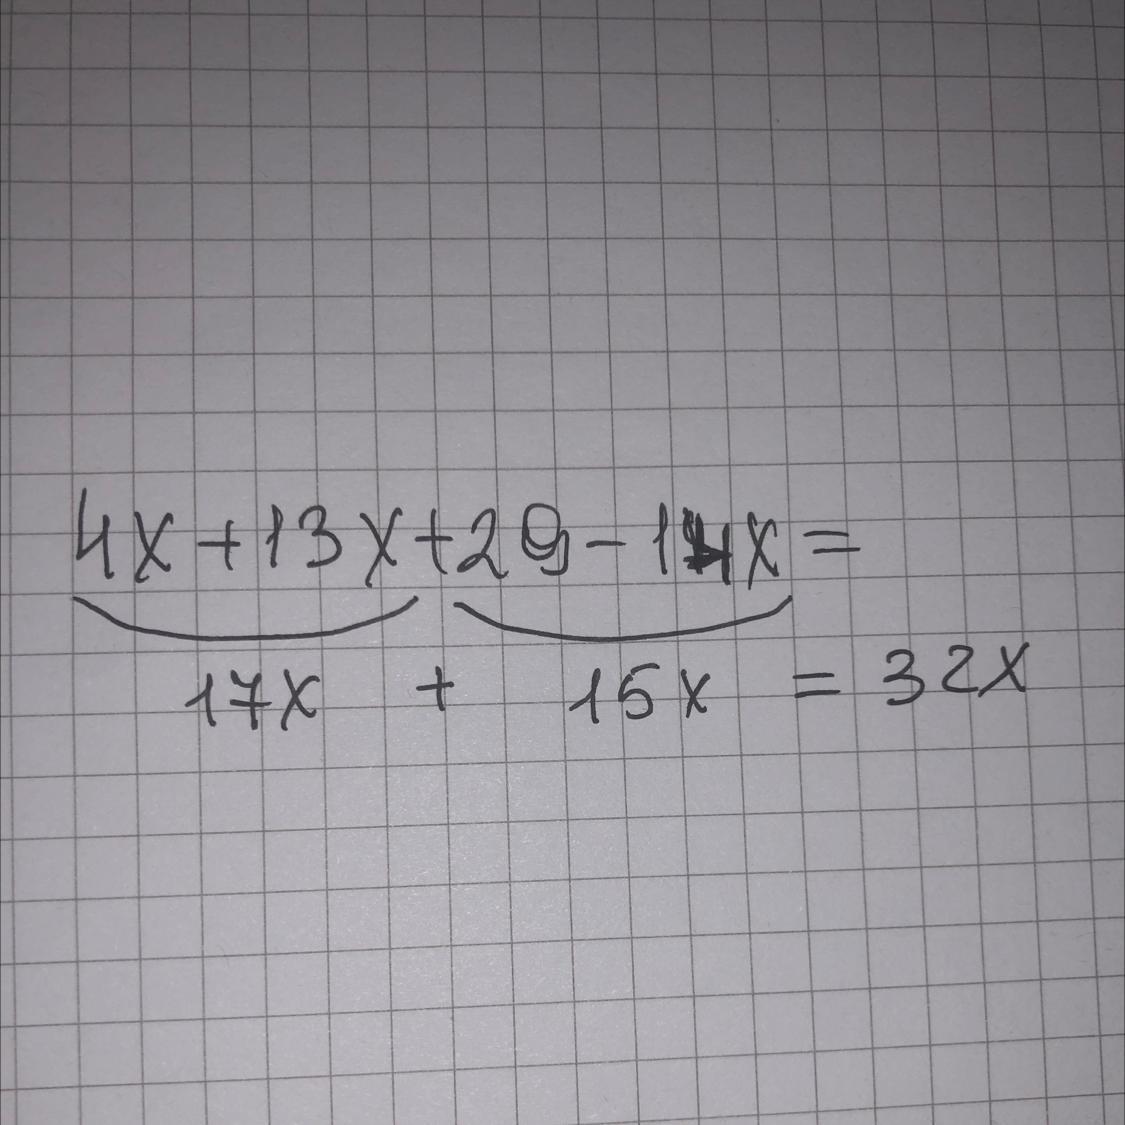 4x+13x+29-14x=
17x + 15x = 32x